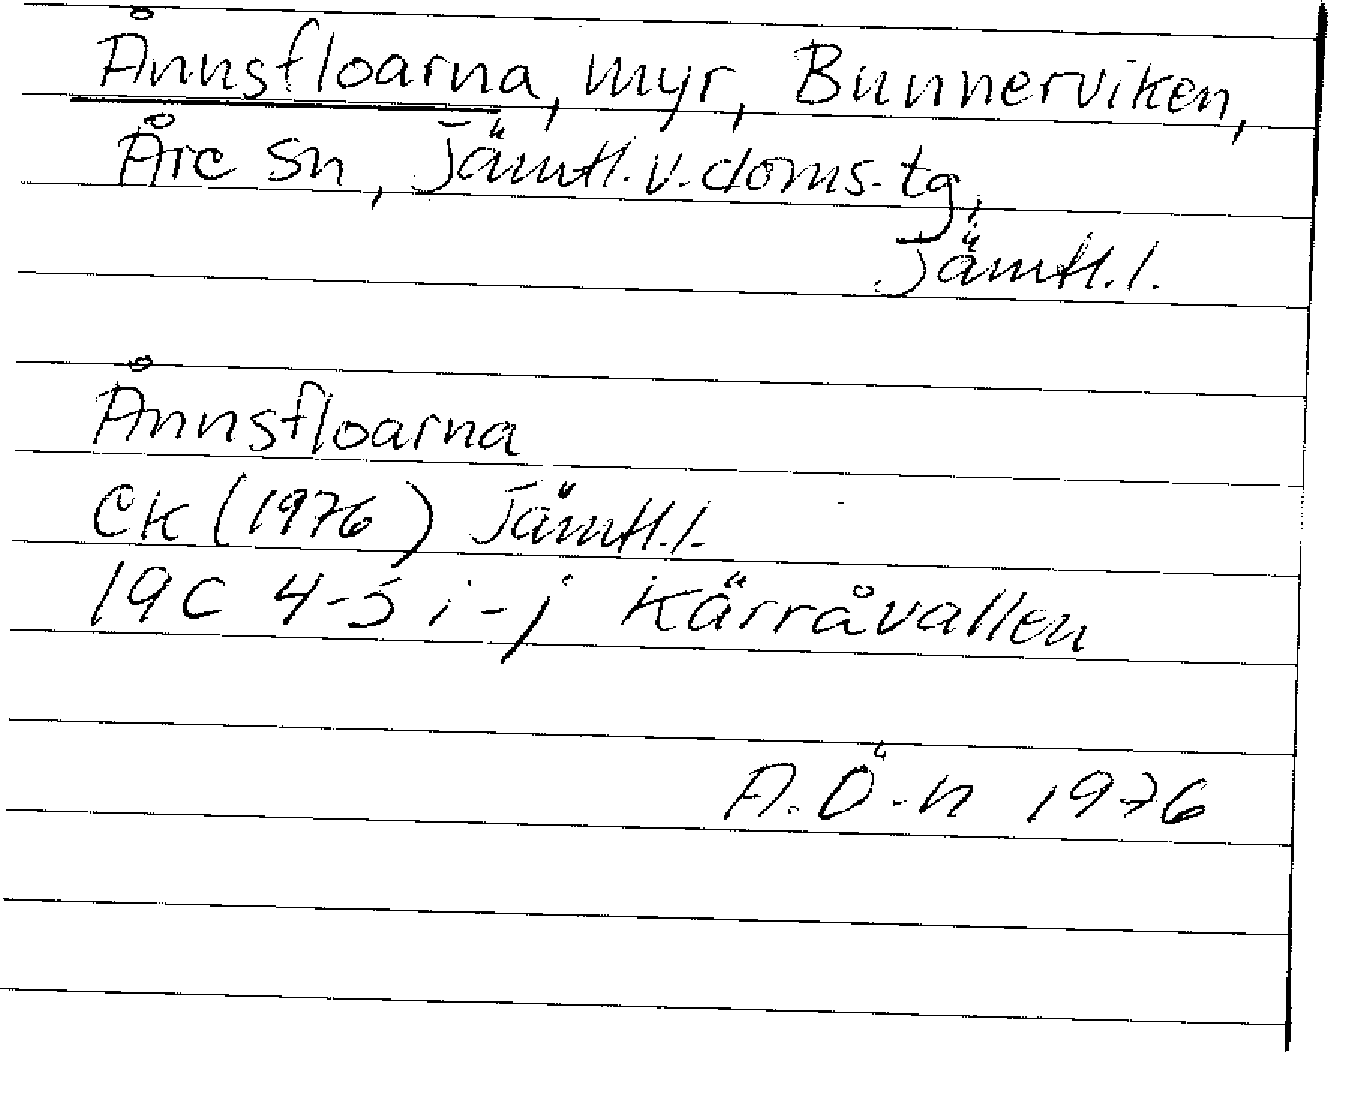 Ånnsfloarna, myr, Bunnerviken,
Åre sn, Jämtl. v. doms. tg,
Jämtl. l.
Ånnsfloarna
EK (1976) Jämtl. l.
19C 4-5 i-j Kärråvallen
A. Ö-n 1976